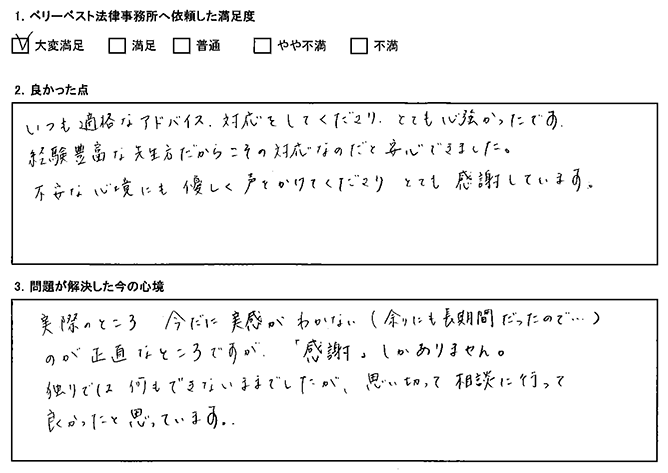 1. ベリーベスト法律事務所へ依頼した満足度
大変満足 満足 普通 やや不満 不満
2. 良かった点
いつも適格なアドバイス、対応をしてくださり、とても心強かったです。
経験豊富な先生方だからこその対応なのだと安心できました。
不安な心境にも優しく声をかけてくださり とても感謝しています。
3. 問題が解決した今の心境
実際のところ 今だに実感がわかない(余りにも長期間だったので…)
のが正直なところですが、「感謝」しかありません。
独りでは何もできないままでしたが、思い切って相談に行って
良かったと思っています。